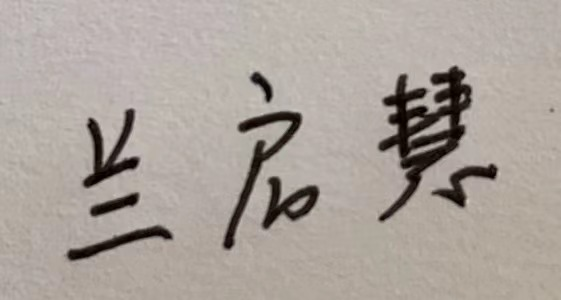 兰启慧